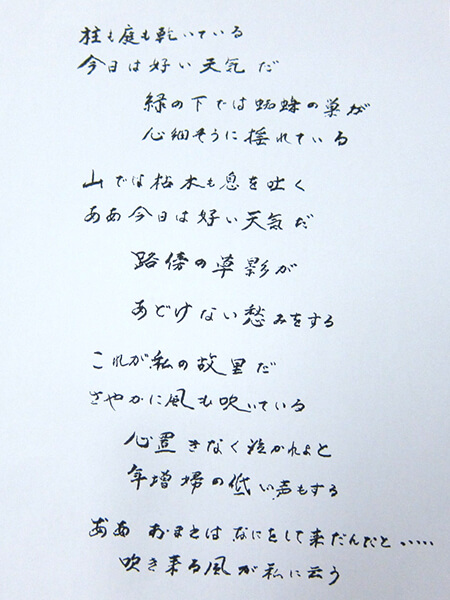 柱も庭も乾いている
今日は好い天気だ
縁の下では蜘蛛の巣が
心細そうに揺れている
山では枯木も息を吐く
ああ今日は好い天気だ
路傍の草影が
あどけない愁みをする
これが私の故里だ
さやかに風も吹いている
心置きなく泣かれよと
年増婦の低い声もする
ああ おまえはなにをして来たんだと……
吹き来る風が私に云う